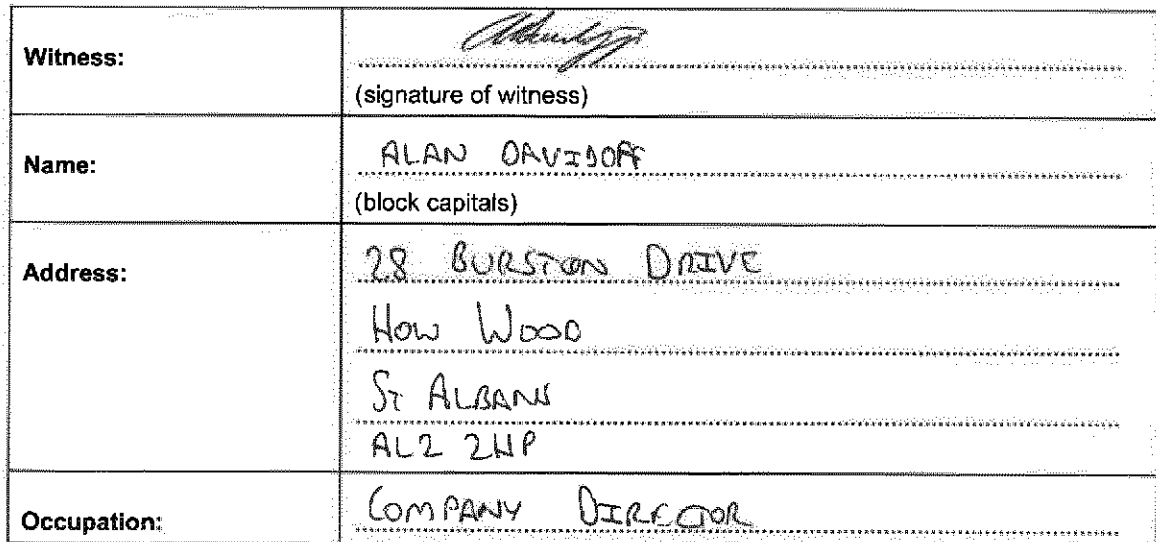 Witness:
(signature of witness)
Name:
ALAN DAVIDOFF
(block capitals)
Address:
28 BURSTON DRIVE
HOW WOOD
ST ALBANS
AL2 2HP
Occupation:
COMPANY DIRECTOR